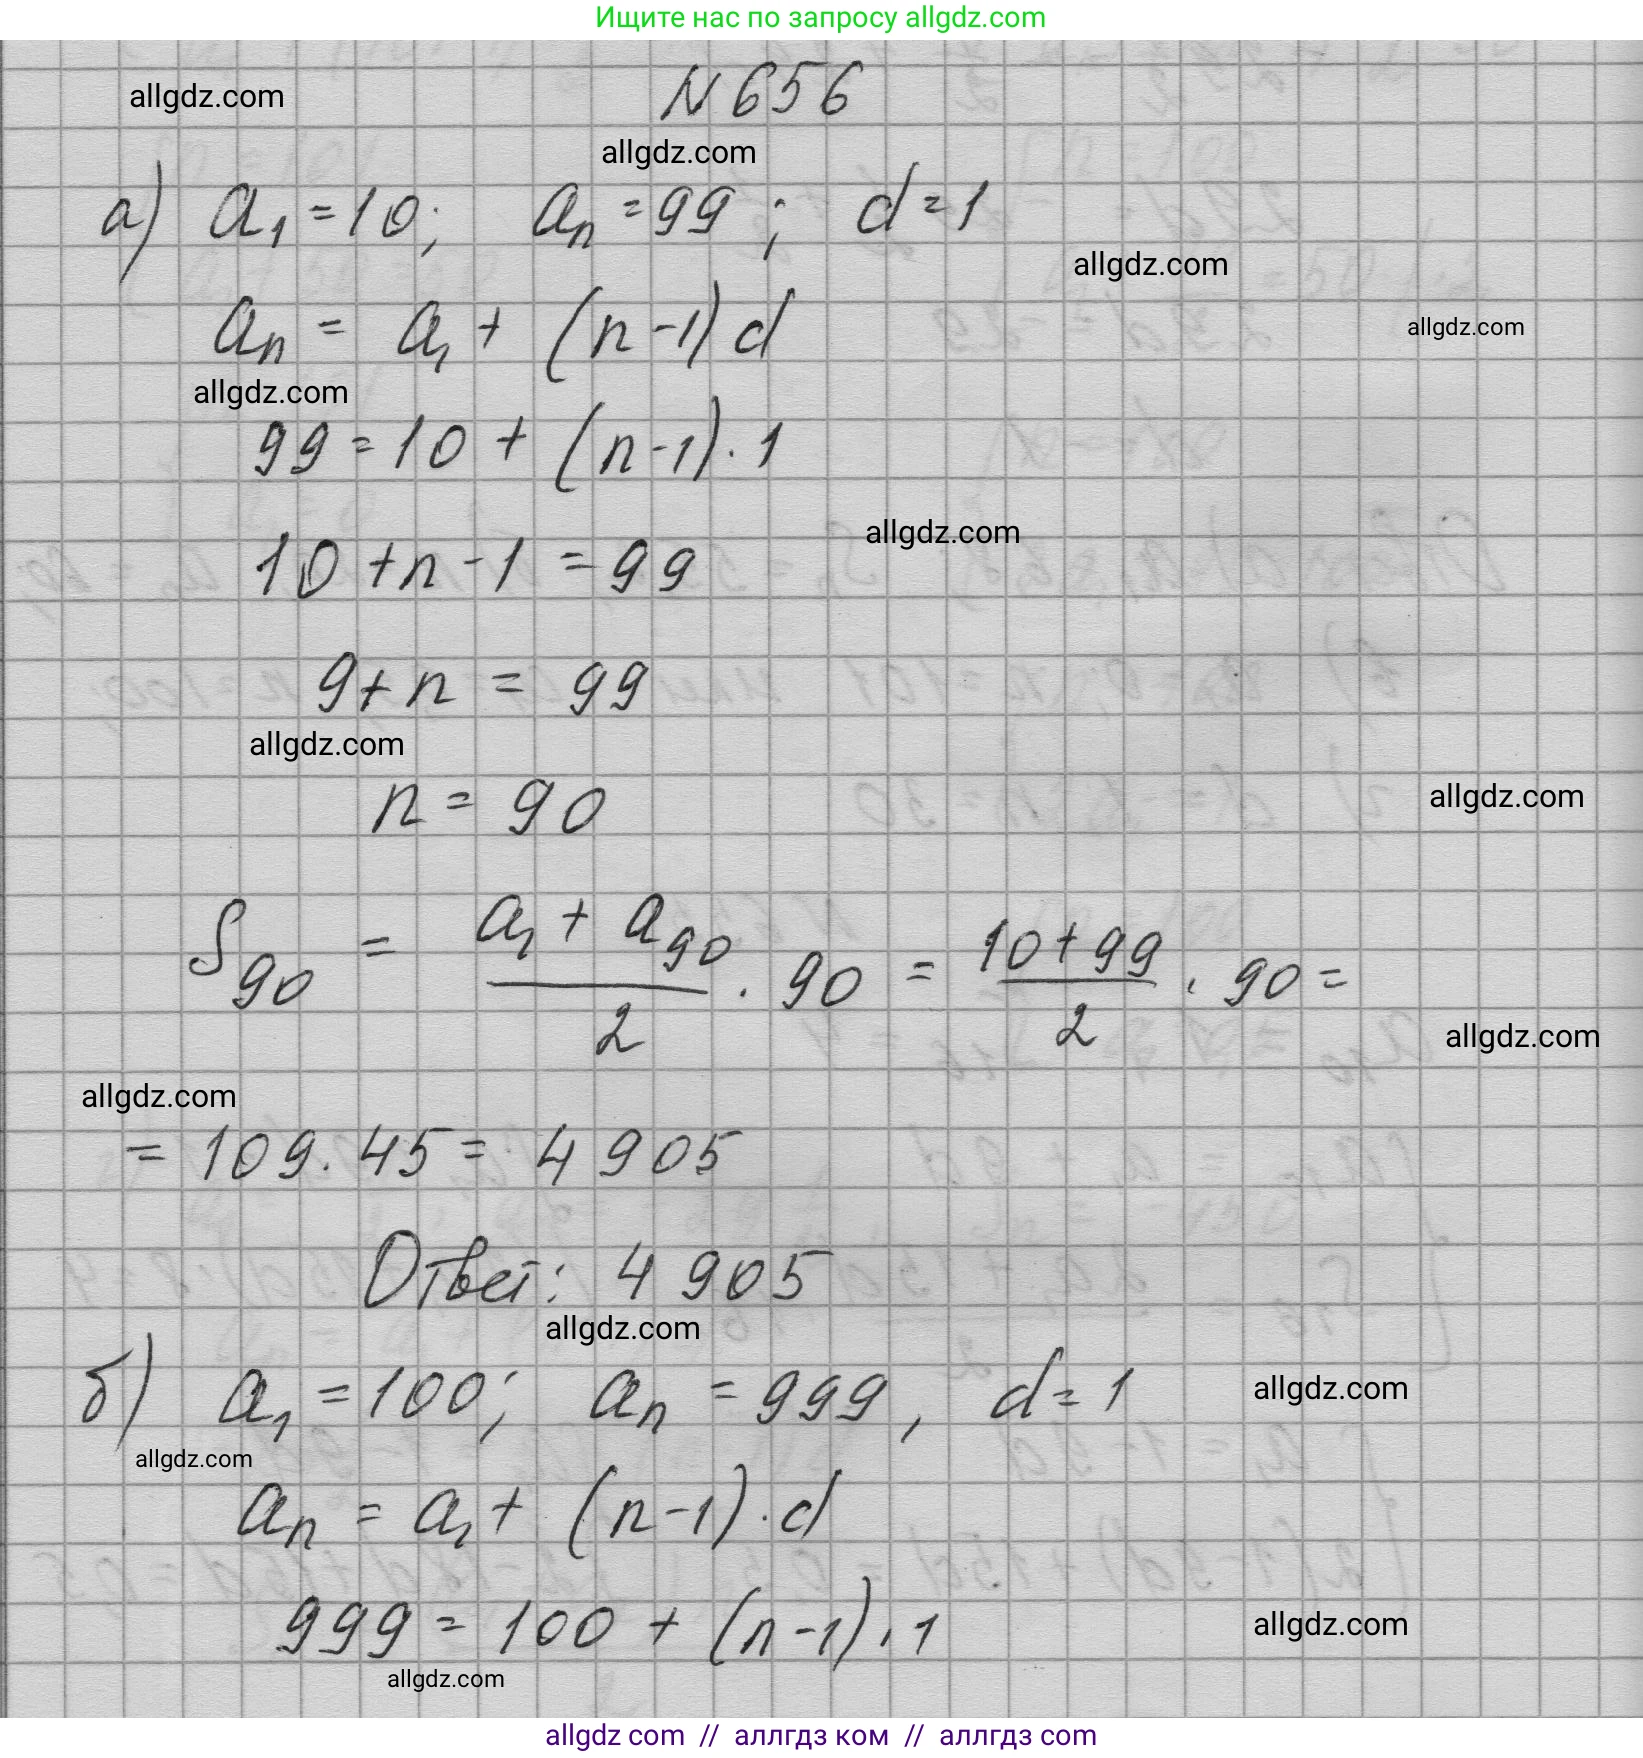 Ищите нас по запросу allgdz.com
allgdz.com
N 656
allgdz.com
а) a₁ = 10; aₙ = 99; d = 1
allgdz.com
aₙ = a₁ + (n-1) d
allgdz.com
allgdz.com
99 = 10 + (n-1) · 1
allgdz.com
10 + n - 1 = 99
9 + n = 99
allgdz.com
n = 90
allgdz.com
S₉₀ = (a₁ + a₉₀)/2 · 90 = (10 + 99)/2 · 90 =
allgdz.com
allgdz.com
= 109 · 45 = 4 905
Ответ: 4 905
allgdz.com
б) a₁ = 100; aₙ = 999, d = 1
allgdz.com
allgdz.com
aₙ = a₁ + (n-1) · d
999 = 100 + (n-1) · 1
allgdz.com
allgdz.com
allgdz com // аллгдз ком // аллгдз com